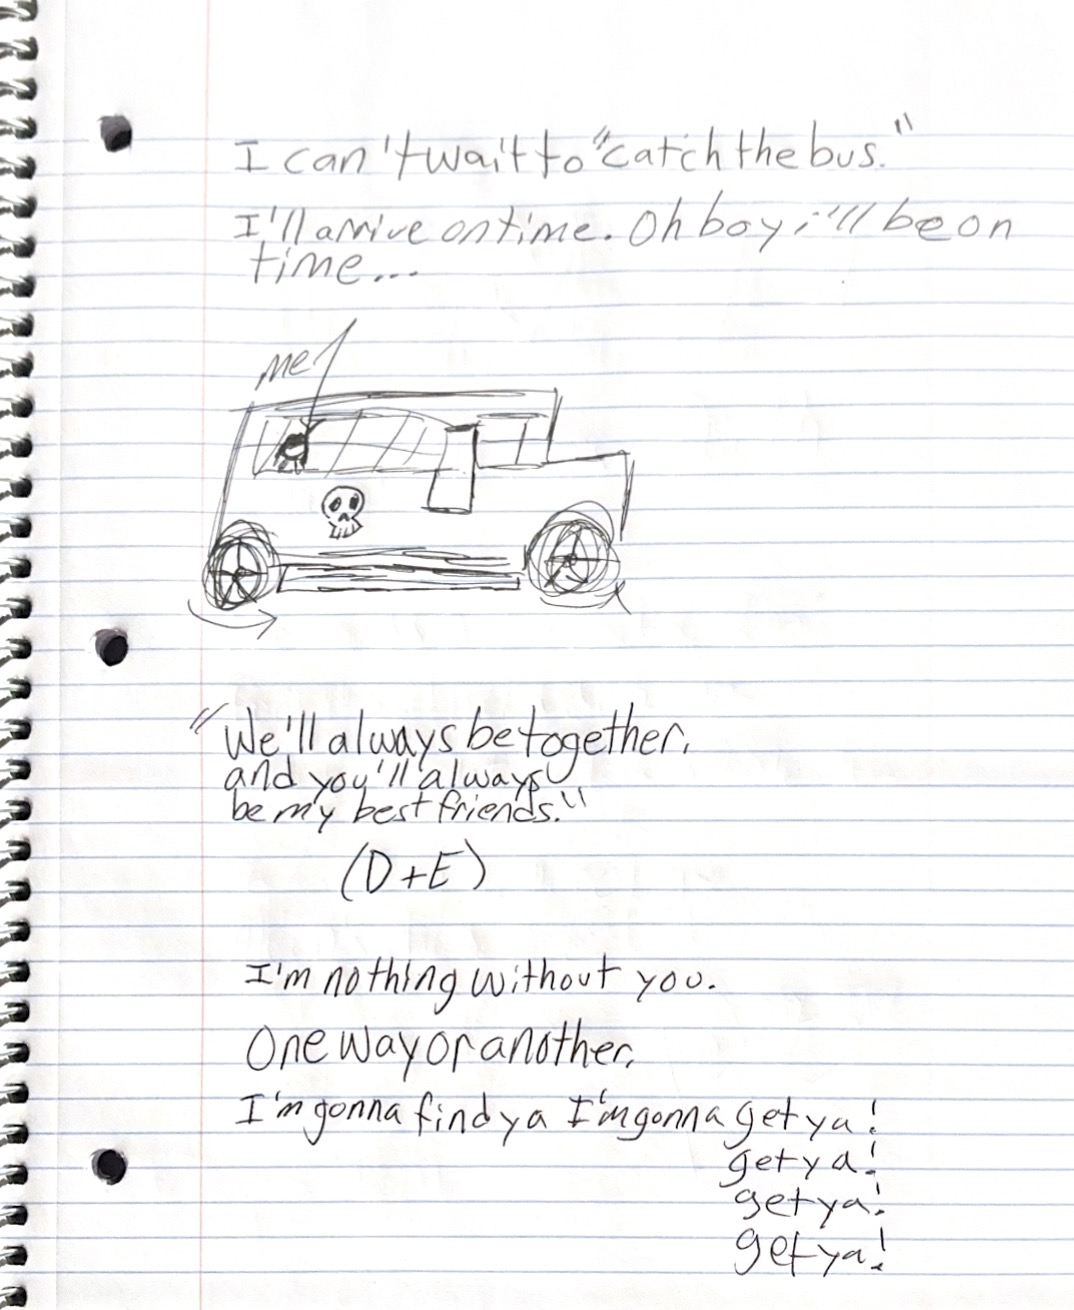 I can't wait to "catch the bus."
I'll arrive on time. Oh boy i'll be on
time...
me
"We'll always be together,
and you'll always
be my best friends."
(D+E)
I'm nothing without you.
One way or another,
I'm gonna find ya I'm gonna get ya!
get ya!
get ya!
get ya!